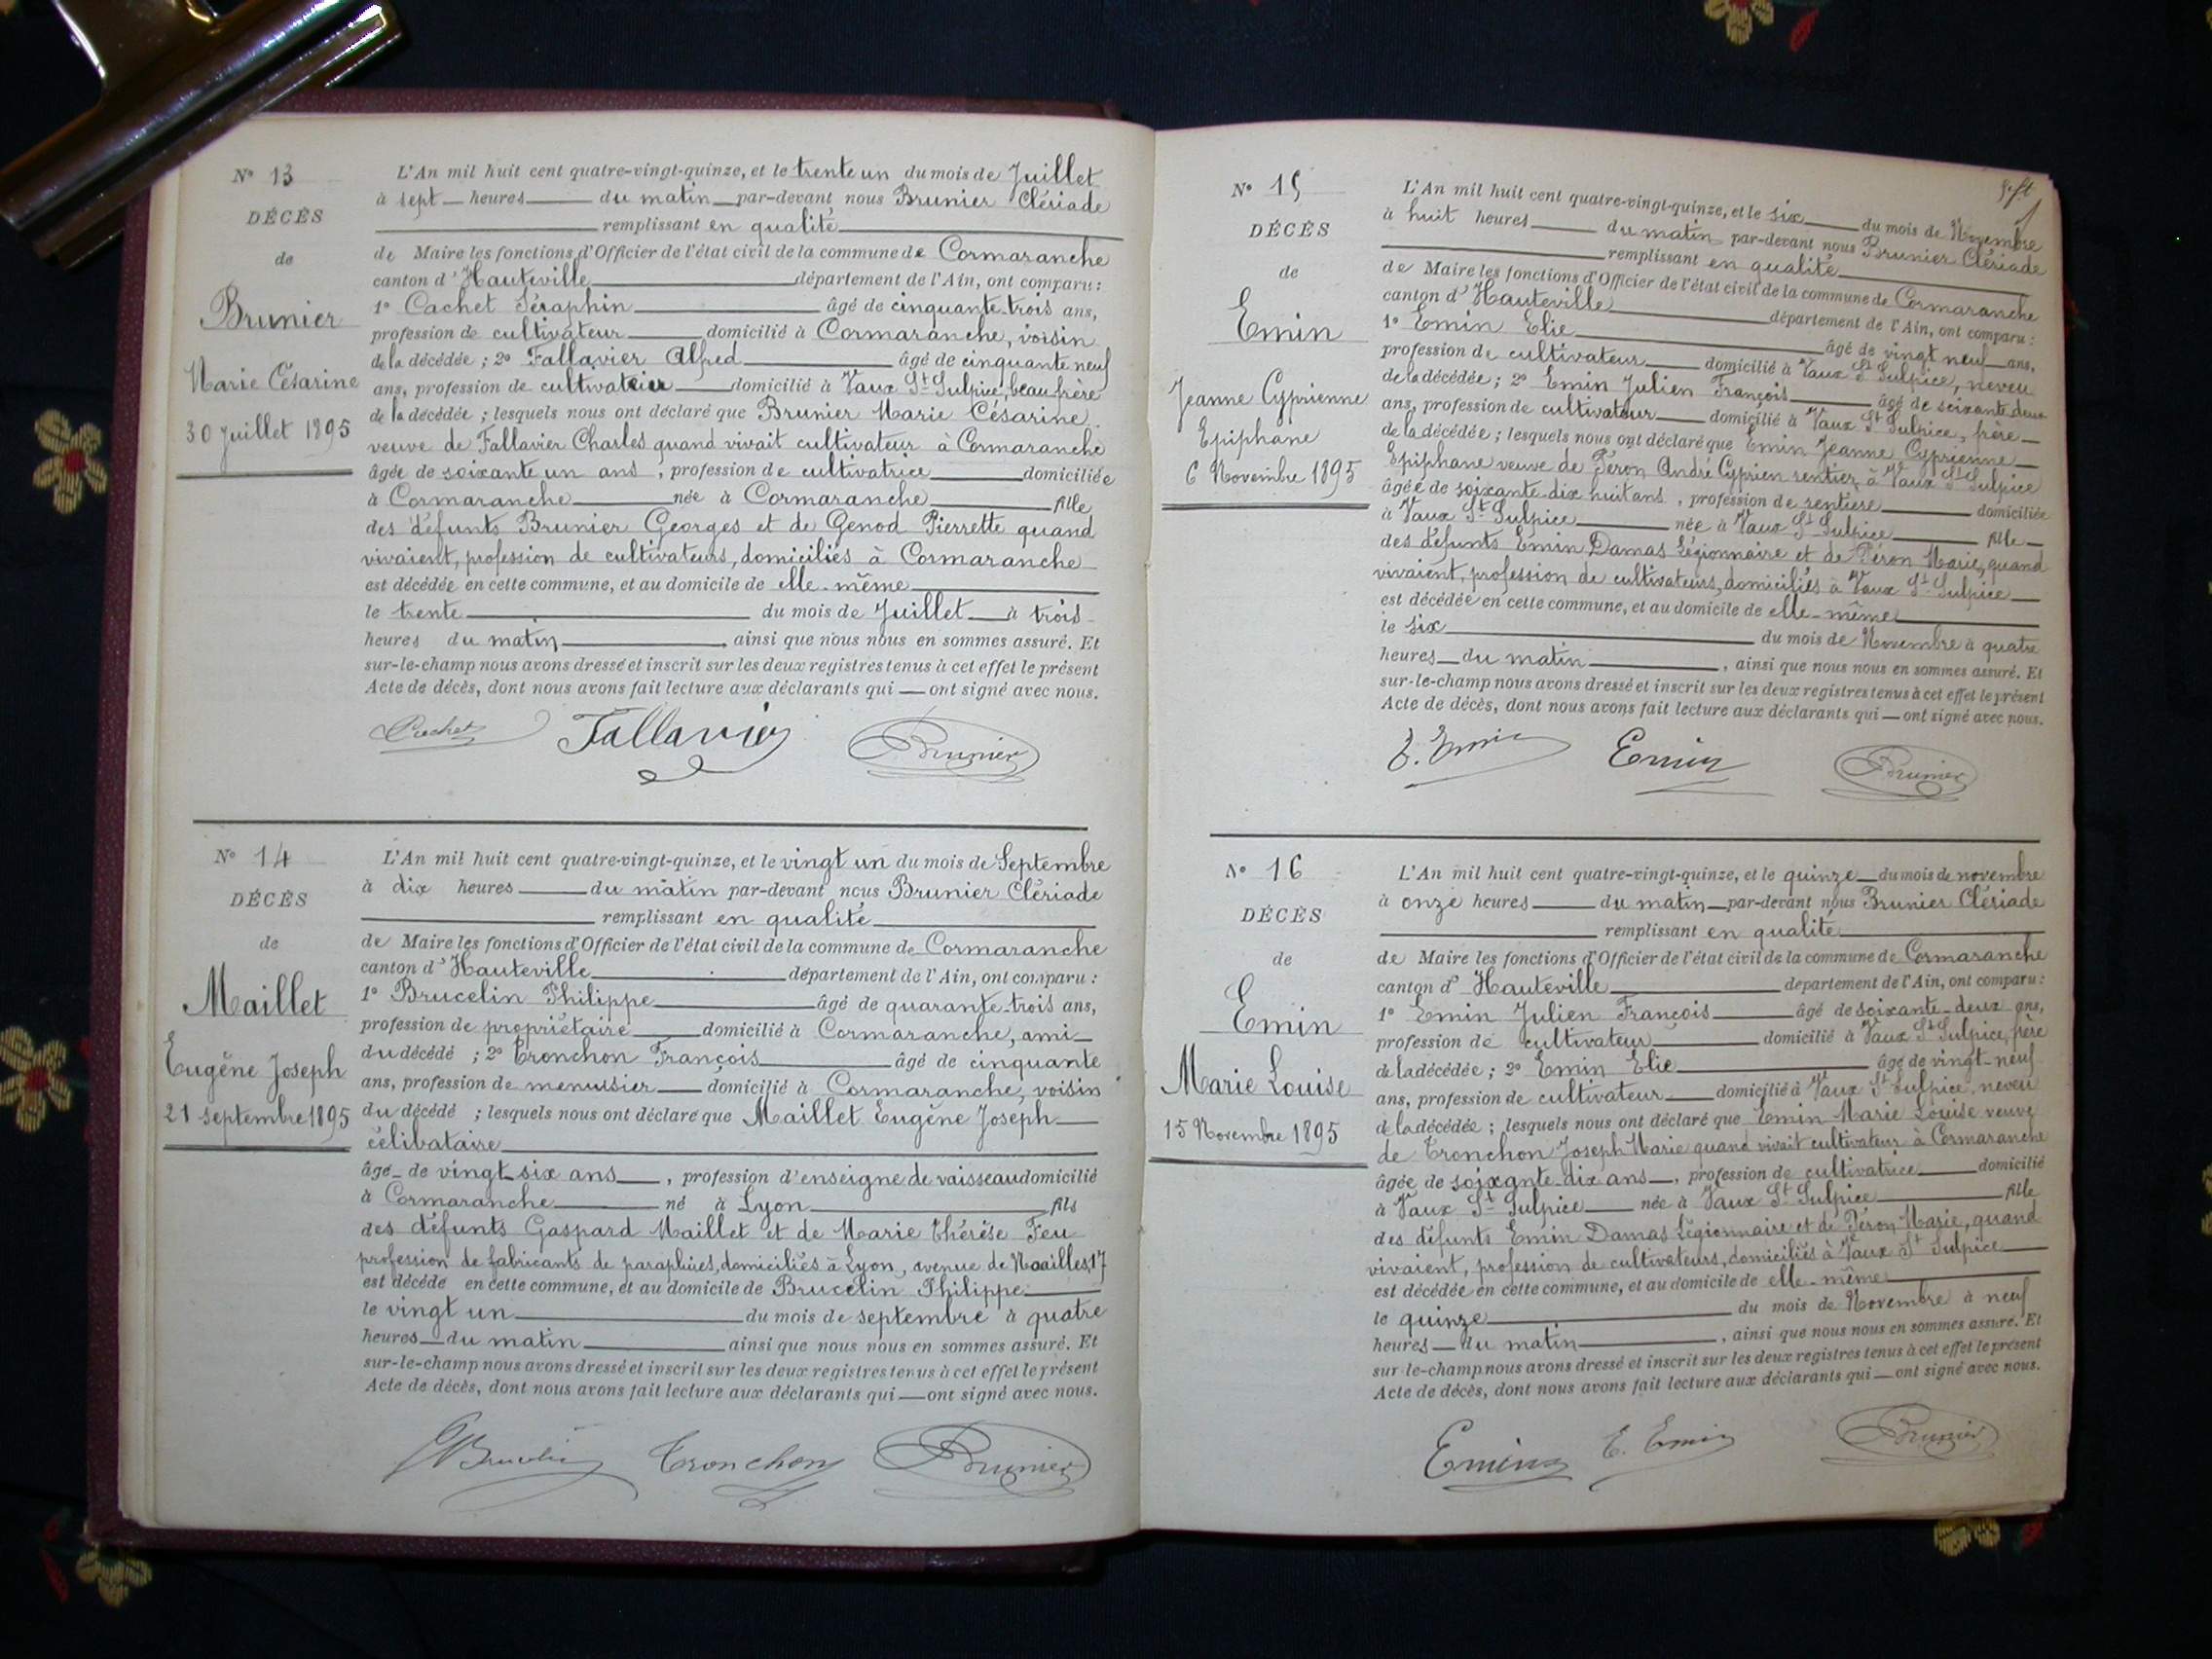 N° 13
DÉCÈS
de
Brunier
Marie Césarine
30 Juillet 1895
L'An mil huit cent quatre-vingt-quinze, et le trente un du mois de Juillet
à sept heures du matin par-devant nous Brunier Clériade
remplissant en qualité
de Maire les fonctions d'Officier de l'état civil de la commune de Cormaranche
canton d'Hauteville département de l'Ain, ont comparu :
1° Cachet Séraphin âgé de cinquante-trois ans,
profession de cultivateur domicilié à Cormaranche, voisin
de la décédée ; 2° Fallavier Alfred âgé de cinquante neuf
ans, profession de cultivateur domicilié à Vaux St Sulpice, beau-frère
de la décédée ; lesquels nous ont déclaré que Brunier Marie Césarine
veuve de Fallavier Charles quand vivait cultivateur à Cormaranche
âgée de soixante un ans , profession de cultivatrice domiciliée
à Cormaranche née à Cormaranche fille
des défunts Brunier Georges et de Genod Pierrette quand
vivaient, profession de cultivateurs, domiciliés à Cormaranche
est décédée en cette commune, et au domicile de elle-même
le trente du mois de Juillet à trois
heures du matin ainsi que nous nous en sommes assuré. Et
sur-le-champ nous avons dressé et inscrit sur les deux registres tenus à cet effet le présent
Acte de décès, dont nous avons fait lecture aux déclarants qui — ont signé avec nous.
Cachet Fallavier Brunier
N° 14
DÉCÈS
de
Maillet
Eugène Joseph
21 septembre 1895
L'An mil huit cent quatre-vingt-quinze, et le vingt un du mois de Septembre
à dix heures du matin par-devant nous Brunier Clériade
remplissant en qualité
de Maire les fonctions d'Officier de l'état civil de la commune de Cormaranche
canton d'Hauteville département de l'Ain, ont comparu :
1° Brucelin Philippe âgé de quarante-trois ans,
profession de propriétaire domicilié à Cormaranche, ami
du décédé ; 2° Tronchon François âgé de cinquante
ans, profession de menuisier domicilié à Cormaranche, voisin
du décédé ; lesquels nous ont déclaré que Maillet Eugène Joseph
célibataire
âgé de vingt-six ans , profession d'enseigne de vaisseau domicilié
à Cormaranche né à Lyon fils
des défunts Gaspard Maillet et de Marie Thérèse Feu
profession de fabricants de parapluies, domiciliés à Lyon, avenue de Noailles, 17
est décédé en cette commune, et au domicile de Brucelin Philippe
le vingt un du mois de septembre à quatre
heures du matin ainsi que nous nous en sommes assuré. Et
sur-le-champ nous avons dressé et inscrit sur les deux registres tenus à cet effet le présent
Acte de décès, dont nous avons fait lecture aux déclarants qui — ont signé avec nous.
Brucelin Tronchon Brunier
N° 15
DÉCÈS
de
Emin
Jeanne Cyprienne
Epiphane
6 Novembre 1895
L'An mil huit cent quatre-vingt-quinze, et le six du mois de Novembre
à huit heures du matin par-devant nous Brunier Clériade
remplissant en qualité
de Maire les fonctions d'Officier de l'état civil de la commune de Cormaranche
canton d'Hauteville département de l'Ain, ont comparu :
1° Emin Elie âgé de vingt neuf ans,
profession de cultivateur domicilié à Vaux St Sulpice, neveu
de la décédée ; 2° Emin Julien François âgé de soixante deux
ans, profession de cultivateur domicilié à Vaux St Sulpice, frère
de la décédée ; lesquels nous ont déclaré que Emin Jeanne Cyprienne
Epiphane veuve de Péron André Cyprien rentier à Vaux St Sulpice
âgée de soixante-dix huit ans , profession de rentière domiciliée
à Vaux St Sulpice née à Vaux St Sulpice fille
des défunts Emin Damas Légionnaire et de Péron Marie, quand
vivaient, profession de cultivateurs, domiciliés à Vaux St Sulpice
est décédée en cette commune, et au domicile de elle-même
le six du mois de Novembre à quatre
heures du matin , ainsi que nous nous en sommes assuré. Et
sur-le-champ nous avons dressé et inscrit sur les deux registres tenus à cet effet le présent
Acte de décès, dont nous avons fait lecture aux déclarants qui — ont signé avec nous.
E. Emin Emin Brunier
N° 16
DÉCÈS
de
Emin
Marie Louise
15 Novembre 1895
L'An mil huit cent quatre-vingt-quinze, et le quinze du mois de novembre
à onze heures du matin par-devant nous Brunier Clériade
remplissant en qualité
de Maire les fonctions d'Officier de l'état civil de la commune de Cormaranche
canton d'Hauteville département de l'Ain, ont comparu :
1° Emin Julien François âgé de soixante-deux ans,
profession de cultivateur domicilié à Vaux St Sulpice, frère
de la décédée ; 2° Emin Elie âgé de vingt-neuf
ans, profession de cultivateur domicilié à Vaux St Sulpice, neveu
de la décédée ; lesquels nous ont déclaré que Emin Marie Louise veuve
de Tronchon Joseph Marie quand vivait cultivateur à Cormaranche
âgée de soixante-dix ans , profession de cultivatrice domicilié
à Vaux St Sulpice née à Vaux St Sulpice fille
des défunts Emin Damas Légionnaire et de Péron Marie, quand
vivaient, profession de cultivateurs, domiciliés à Vaux St Sulpice
est décédée en cette commune, et au domicile de elle-même
le quinze du mois de Novembre à neuf
heures du matin , ainsi que nous nous en sommes assuré. Et
sur-le-champ nous avons dressé et inscrit sur les deux registres tenus à cet effet le présent
Acte de décès, dont nous avons fait lecture aux déclarants qui — ont signé avec nous.
Emin E. Emin Brunier